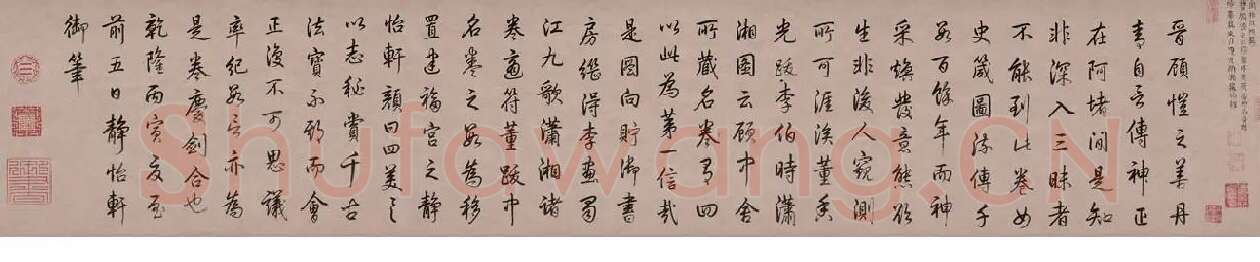 晉顧愷之善丹
青自言傳神正
在阿堵間是知
非深入三昧者
不能到此卷女
史箴圖流傳千
數百餘年而神
采煥發意態欲
生非後人窺測
所可涯涘董香
光跋李伯時瀟
湘圖云顧中舍
所藏名卷有四
以此為第一信哉
是圖向貯御書
房繼得李畫蜀
江九歌瀟湘諸
卷適符董跋中
名卷之數為移
置建福宮之靜
怡軒顏曰四美具
以志秘賞千古
法寶不期而會
正復不可思議
率紀數言亦為
是卷慶劍合也
乾隆丙寅夏至
前五日靜怡軒
御筆
Shufawang.CN